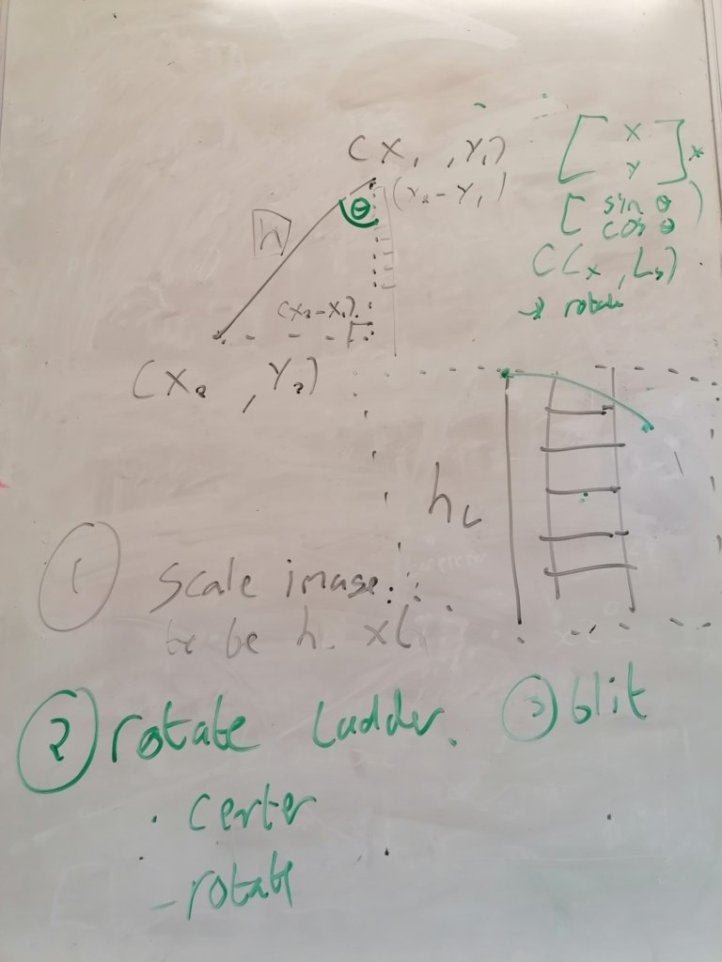 (x₁, y₁)
(y₂-y₁)
θ
h
(x₂-x₁)
(x₂, y₂)
[x
y]*
[sin θ
cos θ)
C(Lx, Ly)
→ rotate
hL
① Scale image
to be h. x L
② rotate Ladder.
③ blit
. center
- rotate